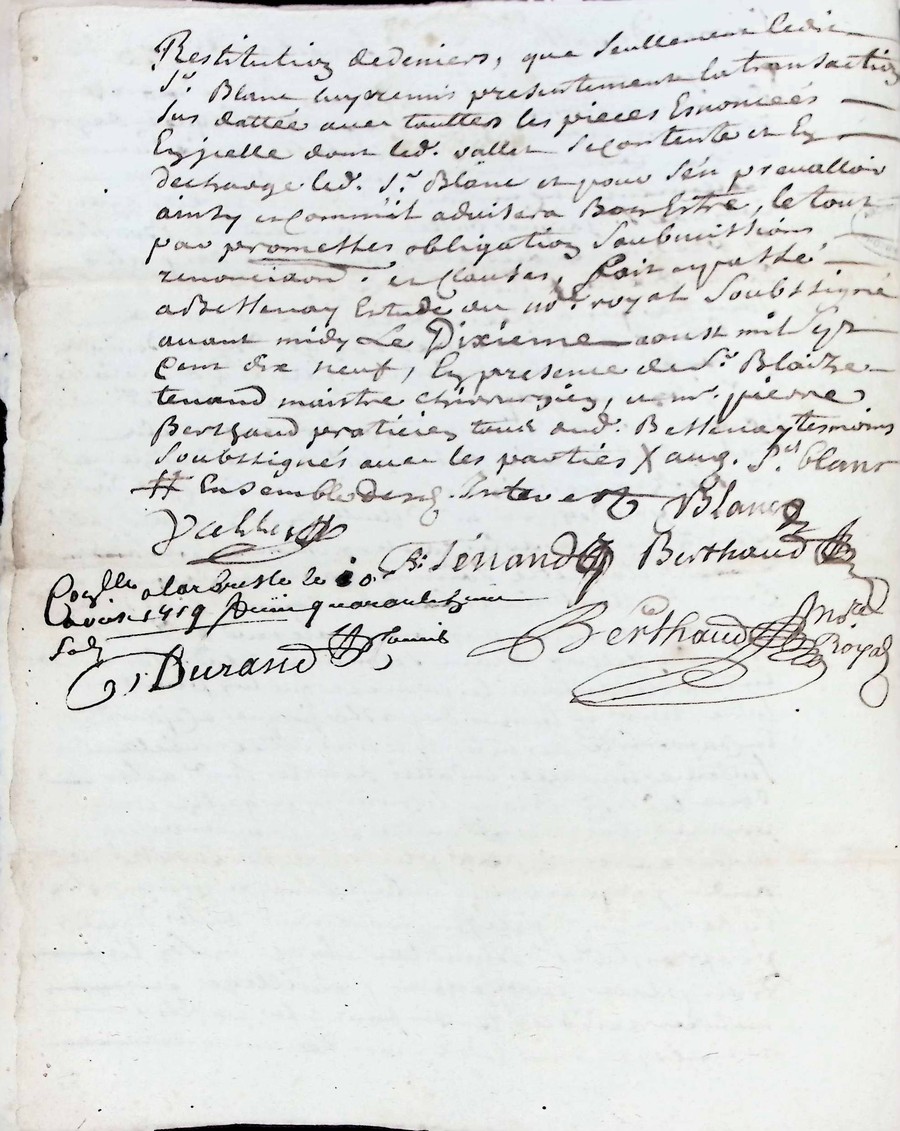 Restitution dedeniers, que seullement ledit
Sr. Blanc luy remis presentement la transaction
sus dattée avec touttes les pieces Enoncées
En jcelle dont led. vallet se contente et En
decharge led. Sr. Blanc et pour s'en prevalloir
ainsy et comm'il advisera Bon Estre, le tout
par promesses obligation soubmissions
renonciaõns et clauses, fait et passé
a Bessenay Estude du no.re royal soubssigné
avant midy Le Dixieme aoust mil sept
cent dix neuf, En presence de sr. Blaize
tenand maistre chirurgien, et mr. pierre
Berthaud praticien tous aud. Bessenay tesmoins
soubssignés avec les parties X aud. Sr. blanc
# Ensemble des Interest Blanc
Vallet
B. Ténand Berthaud
a larbresle le 10
aoust 1719 quarante
sols
Durand
Berthaud no.re Royal